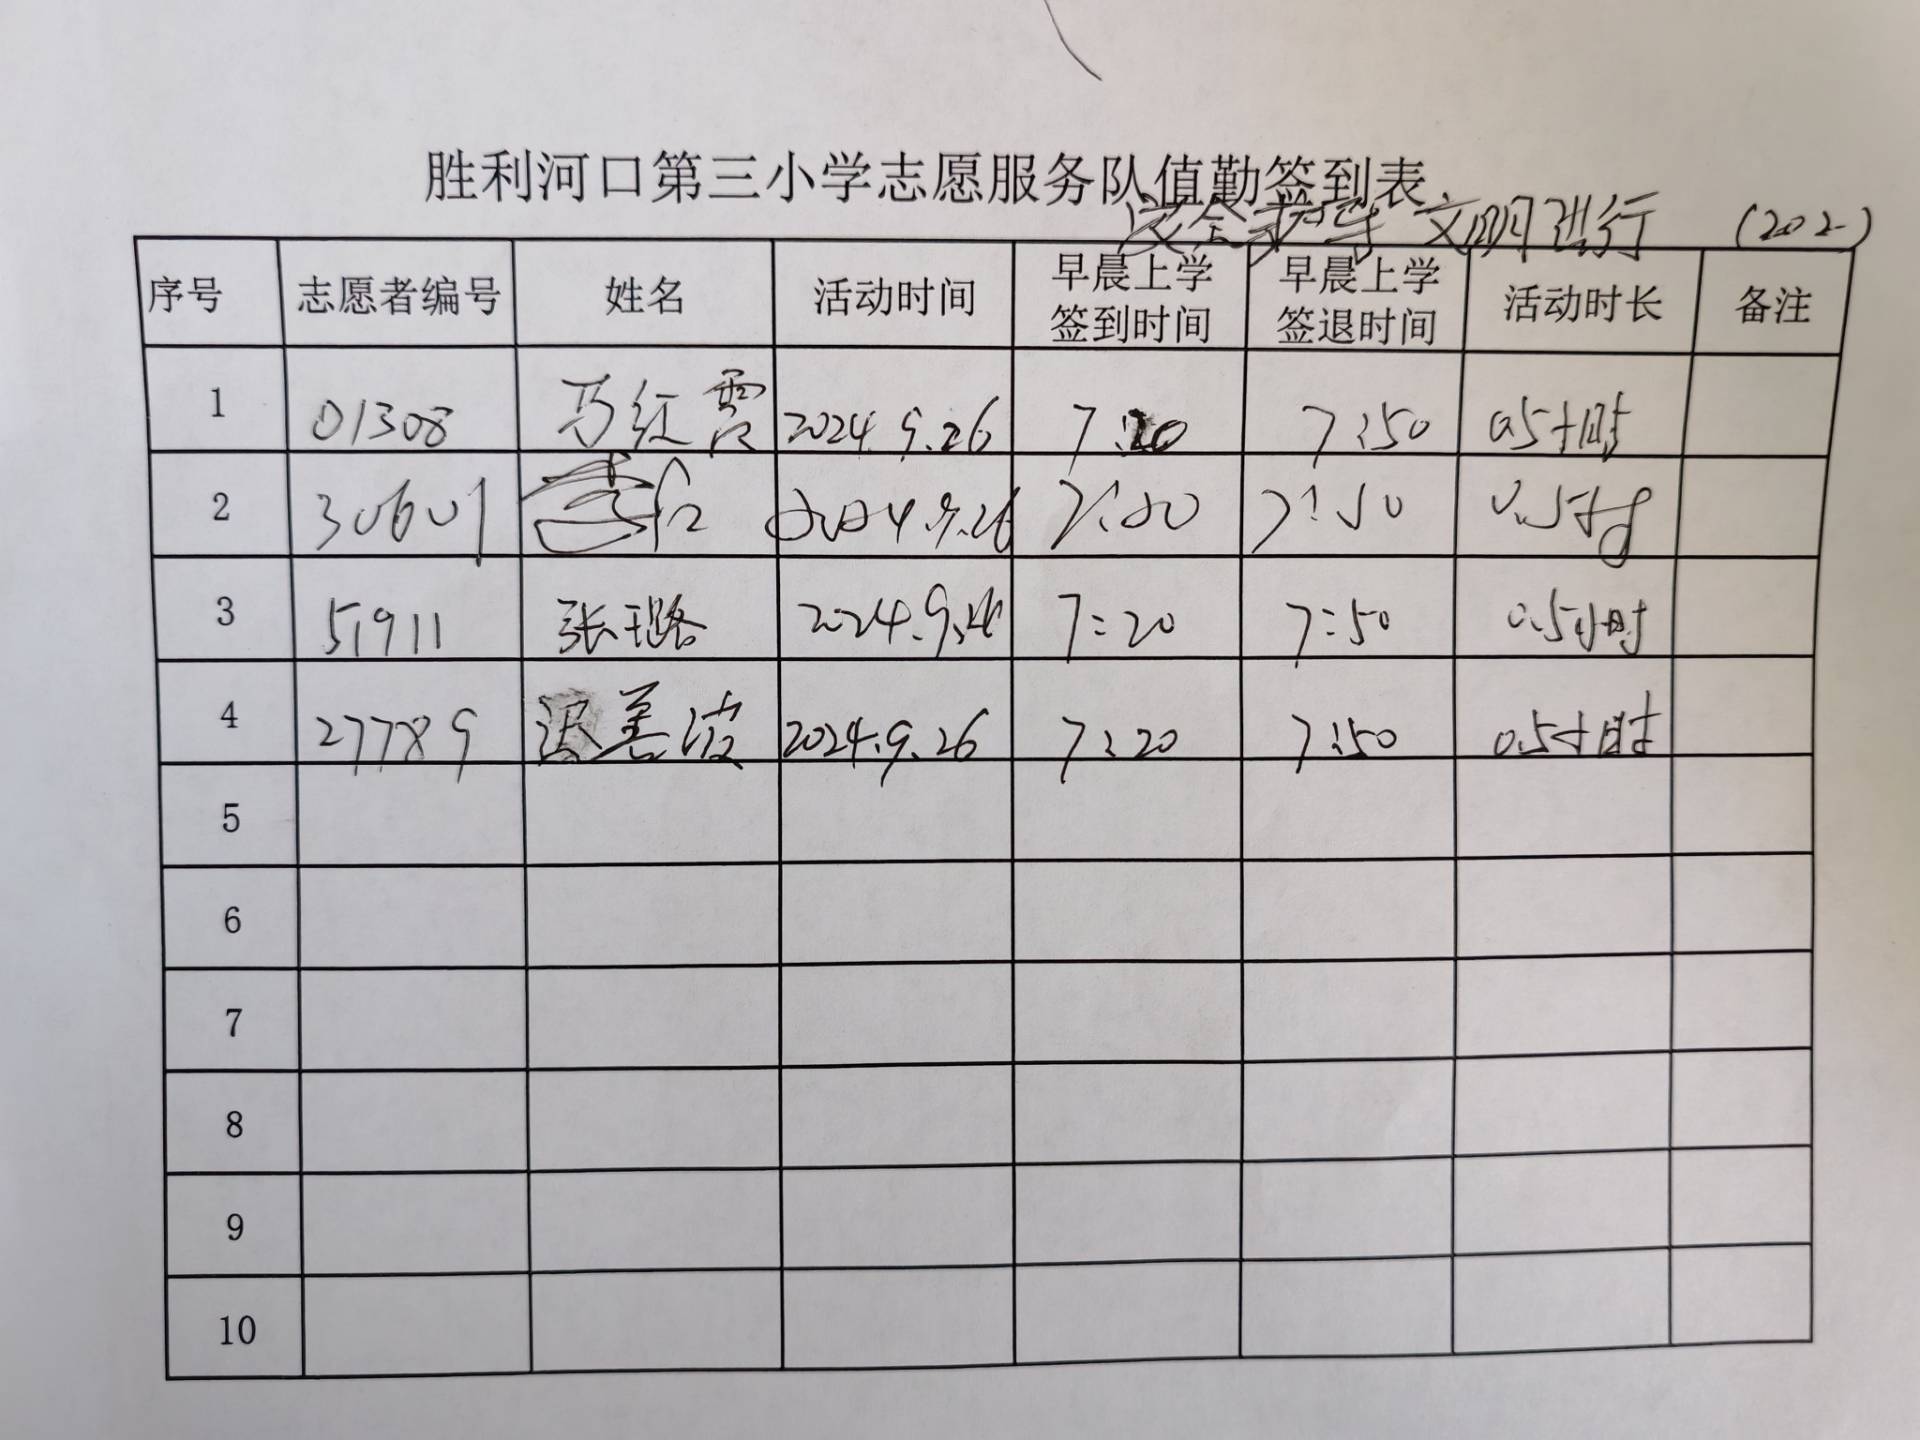 胜利河口第三小学志愿服务队值勤签到表
安全 文明进行 (202)
序号 志愿者编号 姓名 活动时间 早晨上学签到时间 早晨上学签退时间 活动时长 备注
1 01308 马红霞 2024.9.26 7:20 7:50 0.5小时
2 30601 2024.9.26 7:20 7:50 0.5小时
3 51911 张璐 2024.9.26 7:20 7:50 0.5小时
4 27789 善波 2024.9.26 7:20 7:50 0.5小时
5
6
7
8
9
10